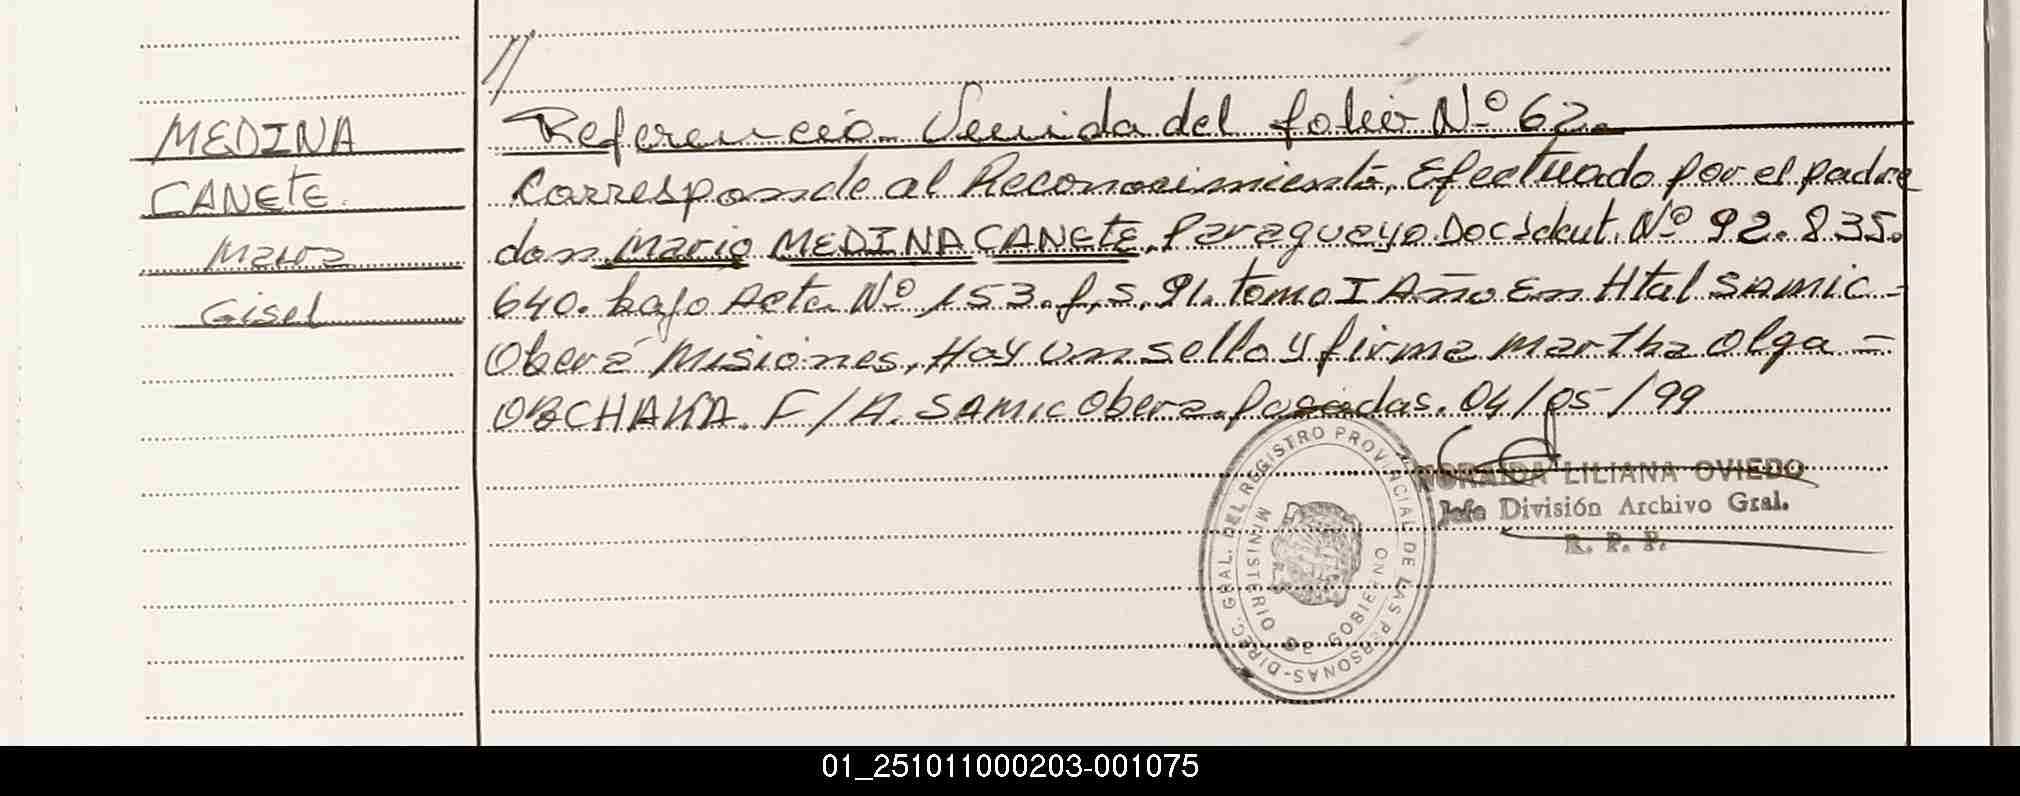 //
MEDINA
CANETE.
Maura
Gisel
Referencia Venida del folio Nº 62.
Corresponde al Reconocimiento, Efectuado por el padre
don Mario MEDINA CANETE, Paraguayo Doc Ident. Nº 92.835.
640. bajo Acta Nº 153. f,s, 91. tomo I Año En Htal SAMIC =
Oberá Misiones, Hay un sello y firma Martha Olga =
F/A. SAMIC Obera. Posadas. 04/05/99
NORAIDA LILIANA OVIEDO
Jefe División Archivo Gral.
R. P. P.
DIREC. GRAL. DEL REGISTRO PROVINCIAL DE LAS PERSONAS-
MINISTERIO DE GOBIERNO
01_251011000203-001075